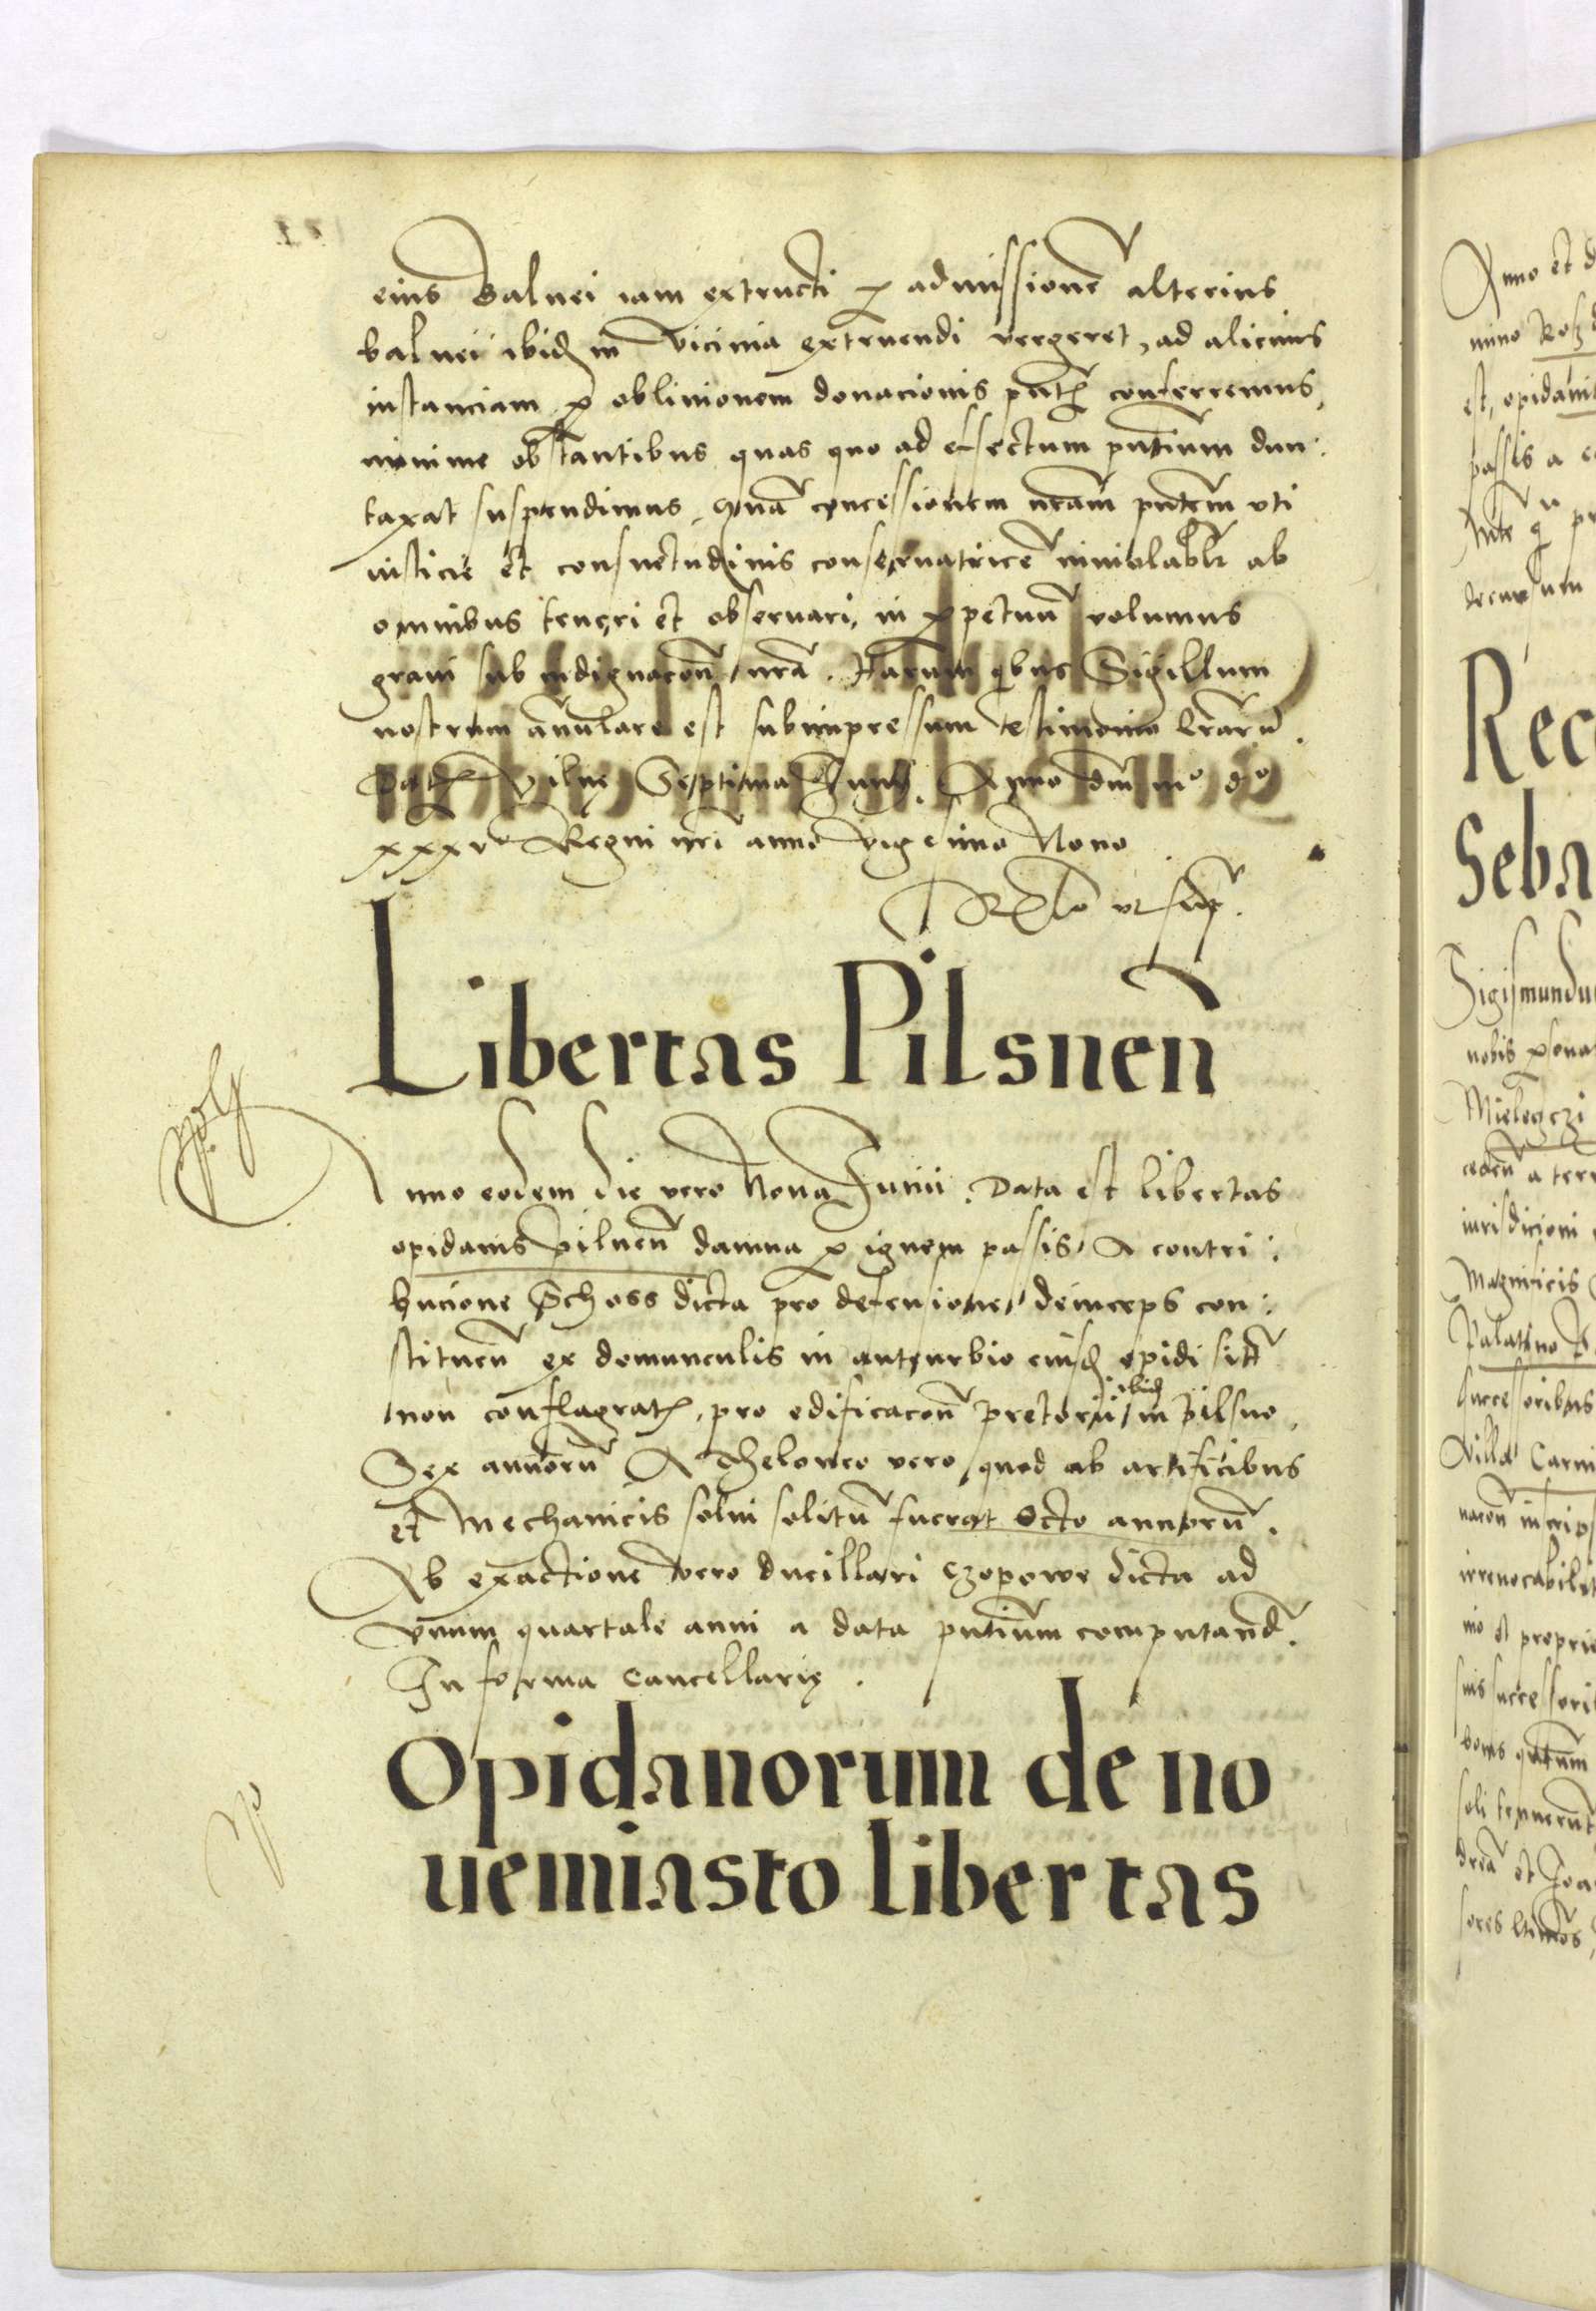 eius Balnei iam extructi p admissionē alterius
balnei ibid in vicinia extruendi vergeret, ad alicuius
instanciam p oblivionem donacionis pnt conferremus,
minime obstantibus quas quo ad effectum pntium dun:
taxat suspendimus, Quā concessionem nrām pntem vti
iusticie et consuetudinis conservatricē inviolablr ab
omnibus teneri et observari, in ppetuū volumus
gravi sub indignacoē nrā. Harum qbus Sigillum
nostrum anulare est subimpressum testimonio lrarū.
Dat Vilne Septima Iunii. Anno dni mo do
xxxvo Regni nri anno vigesimo Nono
Relo ut supr.
Libertas Pilsnen̄
Anno eodem die vero Nona Iunii. Data est libertas
opidanis pilnen̄ damna p ignem passis, A contri:
bucione Schoss dicta pro defensione deinceps con:
stituen̄ ex domunculis in anteurbio eiusd opidi sitt
non conflagrat, pro edificacoē pretorii ibid in pilsno,
Sex annorū A theloneo vero, quod ab artificibus
et Mechanicis solvi solitū fuerat octo annorū.
Ab exactione vero ducillari Czopowe dicta ad
vnum quartale anni a data pntium computand.
In forma Cancellarie.
Opidanorum de no
ueminsto libertas
Anno et d
mino
est, opidani
passis a
Rec
Seba
Sigismundu
nobis psona
Mielegczi
a terr
iurisdicioni
Magnificis
Palatino
successoribus
Villa Carni
inscrip
irrevocabilit
et propri
suis successori
bonis
soli tenuerunt
et Joa